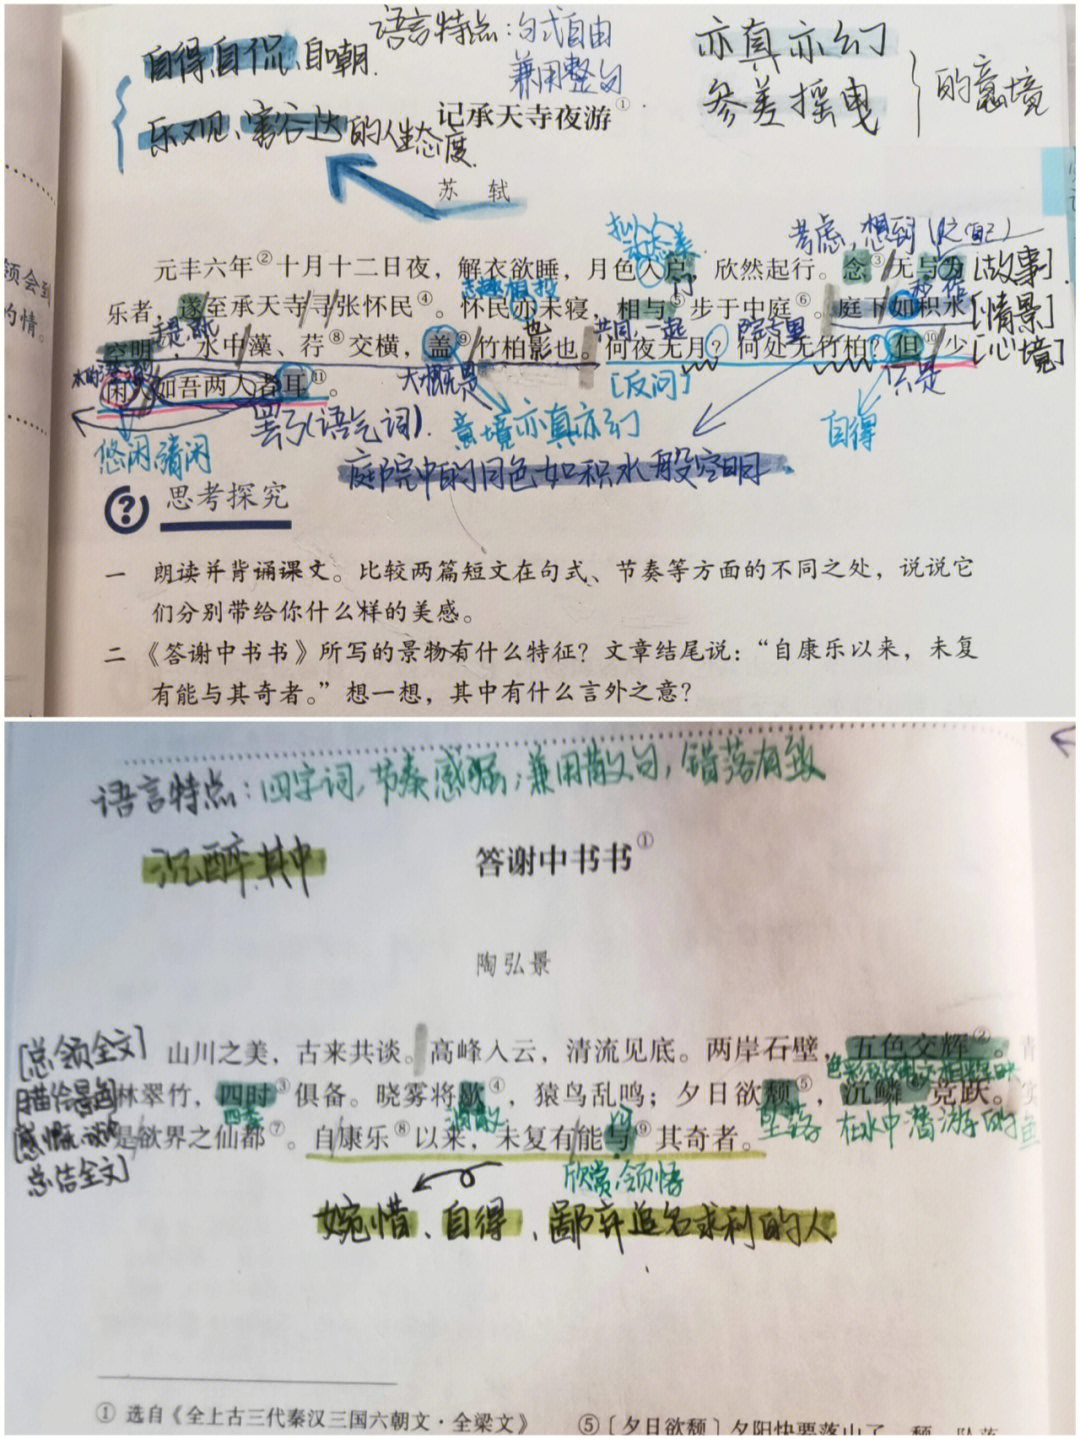 语言特点：句式自由
兼用整句
自得、自侃、自嘲
乐观、豁达的人生态度
亦真亦幻
参差摇曳
的意境
记承天寺夜游①
苏 轼
领会到
的情。
拟人
动态美
考虑，想到
元丰六年②十月十二日夜，解衣欲睡，月色入户，欣然起行。念③无与为
[故事]
乐者，遂至承天寺寻张怀民④。怀民亦未寝，相与⑤步于中庭⑥。庭下如积水
[情景]
也
共同，一起
院子里
空明，水中藻、荇⑧交横，盖⑨竹柏影也。何夜无月？何处无竹柏？但⑩少
[心境]
闲人如吾两人者耳⑪。
大概是
[反问]
只是
罢了(语气词).
意境亦真亦幻
自得
悠闲清闲
庭院中的月色如积水般空明.
思考探究
一 朗读并背诵课文。比较两篇短文在句式、节奏等方面的不同之处，说说它
们分别带给你什么样的美感。
二 《答谢中书书》所写的景物有什么特征？文章结尾说：“自康乐以来，未复
有能与其奇者。”想一想，其中有什么言外之意？
语言特点：四字词，节奏感强；兼用散文句，错落有致
沉醉其中
答谢中书书①
陶弘景
[总领全文]
山川之美，古来共谈。高峰入云，清流见底。两岸石壁，五色交辉②。青
[描绘景色]
林翠竹，四时③俱备。晓雾将歇④，猿鸟乱鸣；夕日欲颓⑤，沉鳞竞跃。实
四季
消散
坠落
在水中潜游的鱼
是欲界之仙都⑦。自康乐⑧以来，未复有能与⑨其奇者。
总结全文]
欣赏，领悟
婉惜、自得、鄙弃追名求利的人
① 选自《全上古三代秦汉三国六朝文·全梁文》
⑤〔夕日欲颓〕夕阳快要落山了。颓，坠落